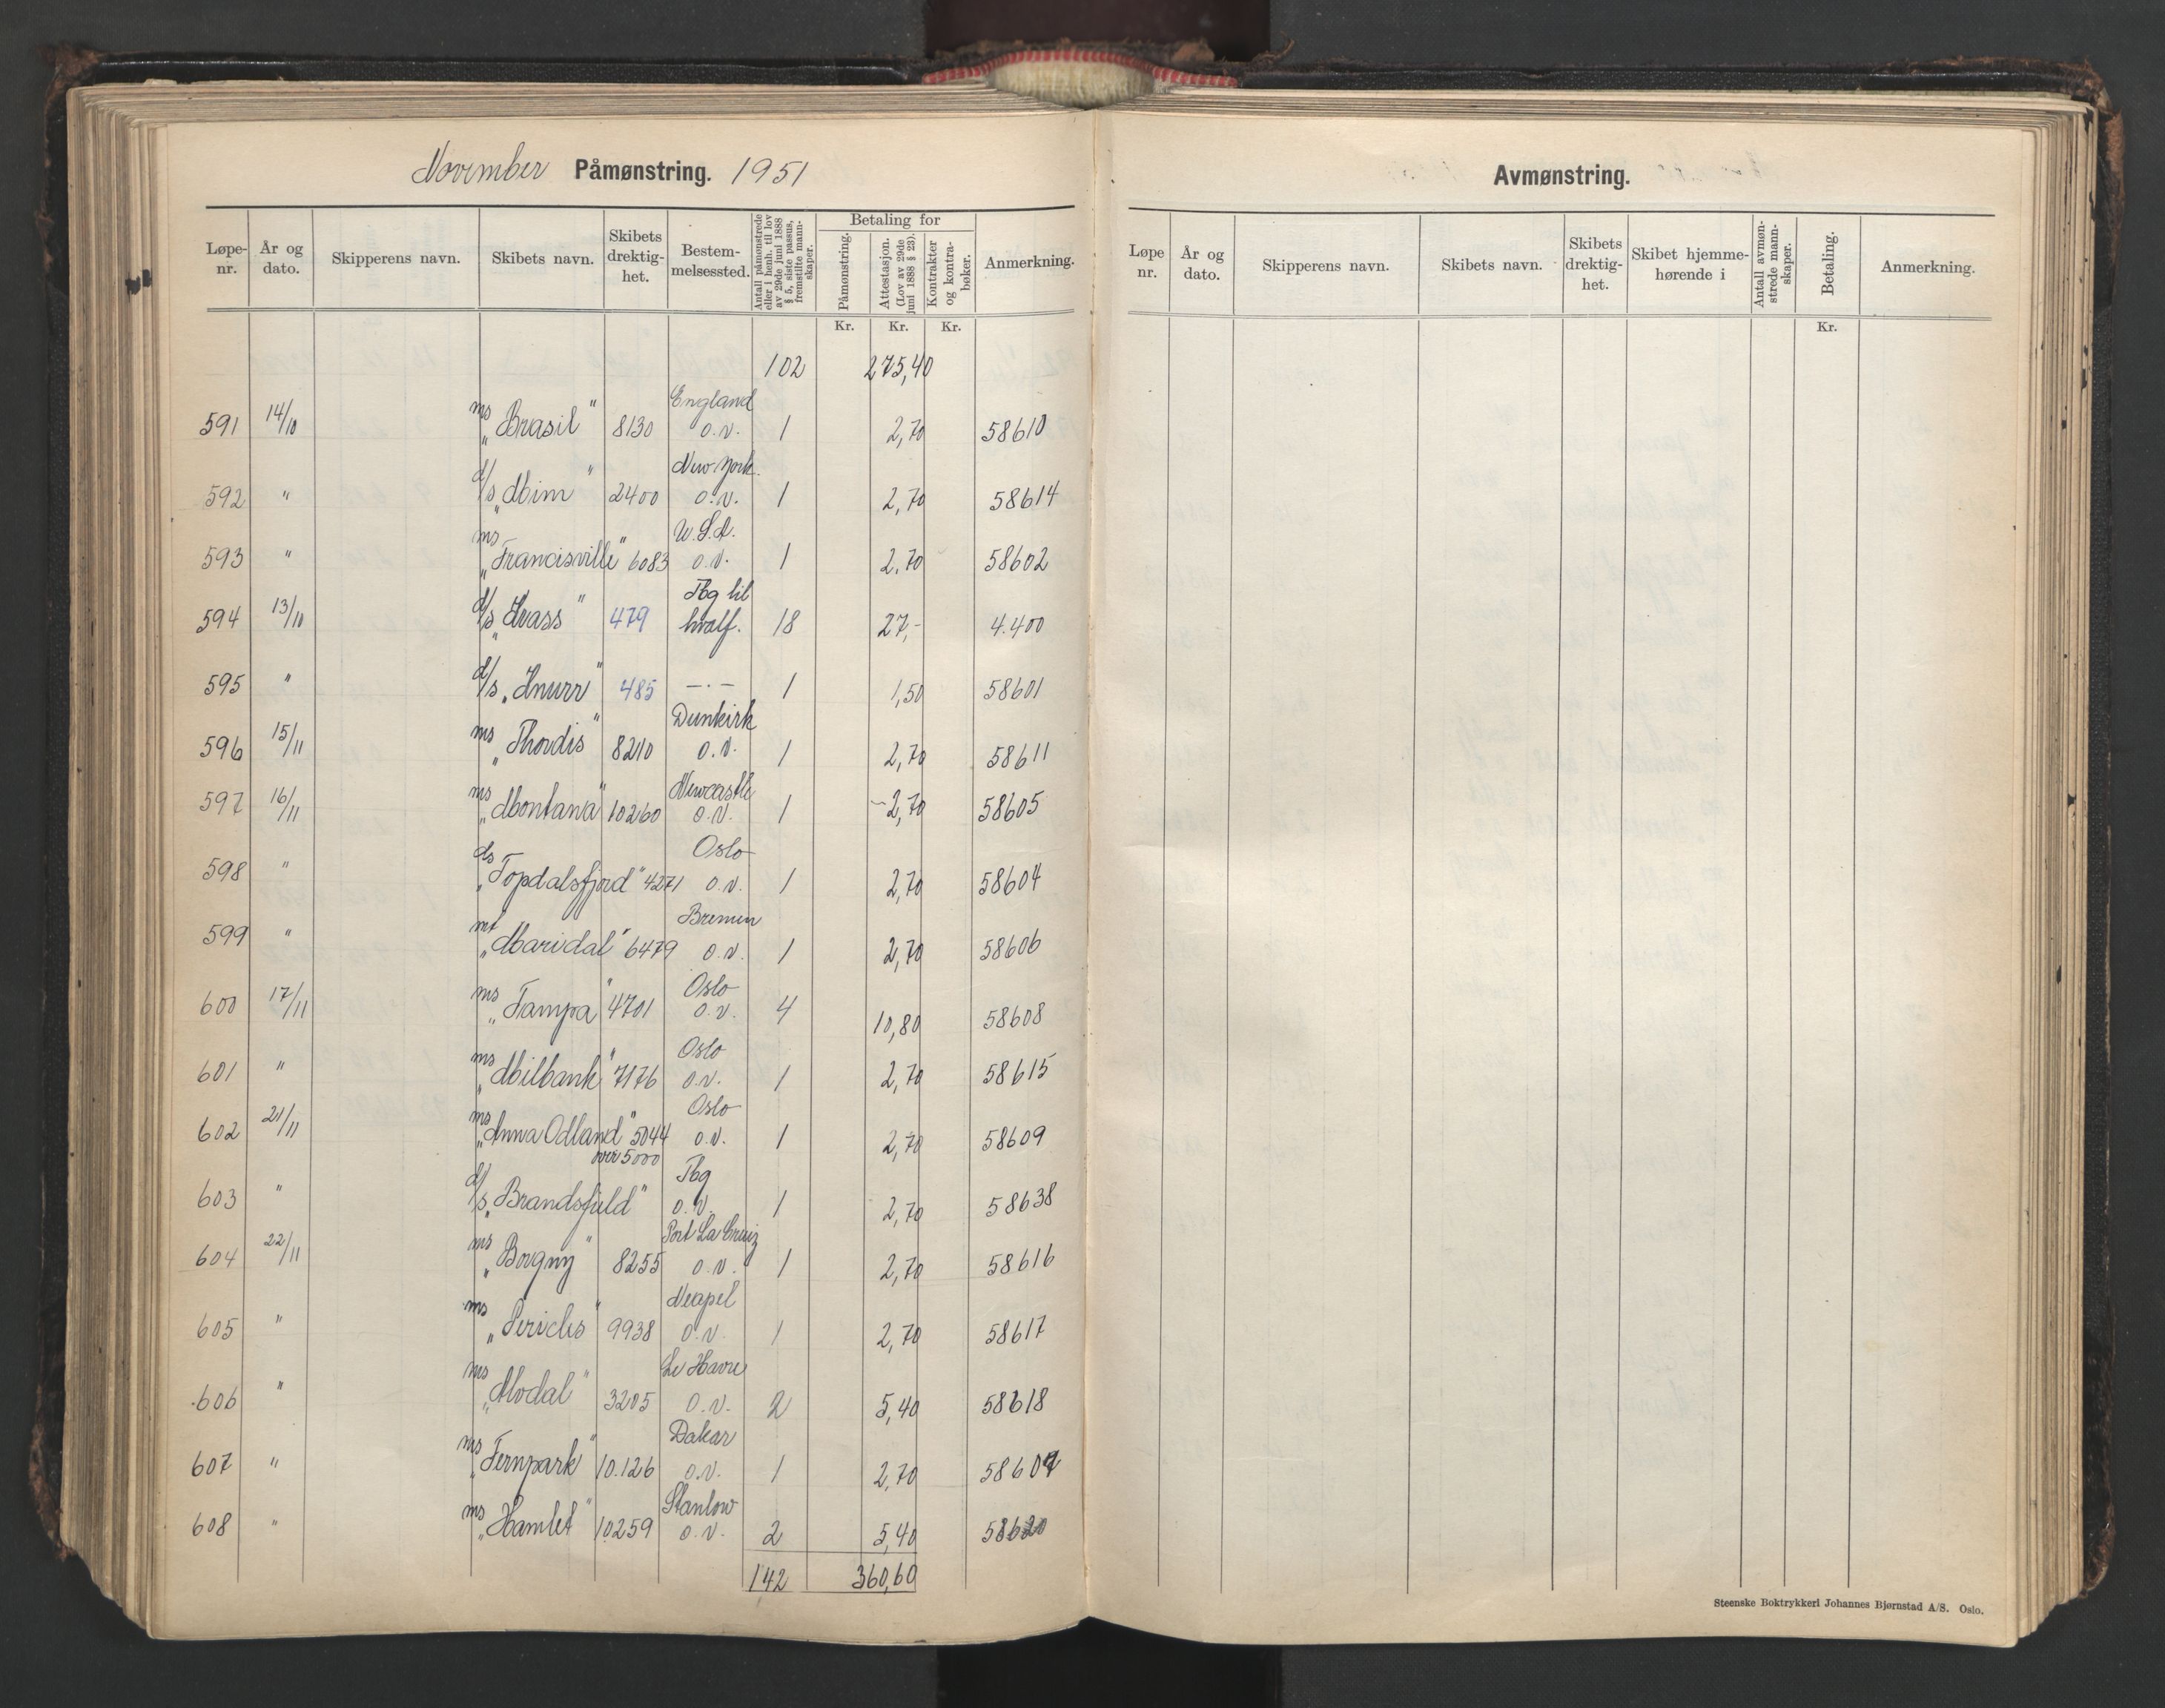 November Påmønstring. 1951
Løpe-nr. År og dato. Skipperens navn. Skibets navn. Skibets drektig-het. Bestem-melsessted. Antall påmønstrede eller i henh. til lov av 29de juni 1888 § 5, siste passus, fremstilte mann-skaper. Betaling for Påmønstring. Attestasjon. (Lov av 29de juni 1888 § 23). Kontrakter og kontra-bøker. Anmerkning.
Kr. Kr. Kr.
102 275,40
591 14/10 ms „Brasil" 8130 England o.v. 1 2,70 58610
592 " d/s „Mim" 2400 New York o.v. 1 2,70 58614
593 " ms „Francisville" 6083 U.S.A. o.v. 1 2,70 58602
594 13/10 d/s „Kvass" 479 Tbg til hvalf. 18 27,- 4.400
595 " d/s „Knurr" 485 —·— 1 1,50 58601
596 15/11 ms „Thordis" 8210 Dunkirk o.v. 1 2,70 58611
597 16/11 ms „Montana" 10260 Newcastle o.v. 1 2,70 58605
598 " ds „Topdalsfjord" 4271 Oslo o.v. 1 2,70 58604
599 " mt „Maridal" 6479 Bremen o.v. 1 2,70 58606
600 17/11 ms „Tampa" 4701 Oslo o.v. 4 10,80 58608
601 " ms „Milbank" 7176 Oslo o.v. 1 2,70 58615
602 21/11 ms „Anna Odland" 5044 Oslo o.v. 1 2,70 58609
603 " d/s „Brandsfield" over 5000 Tbg o.v. 1 2,70 58638
604 22/11 ms „Borgny" 8255 Port La Cruiz o.v. 1 2,70 58616
605 " ms „Pericles" 9938 Neapel o.v. 1 2,70 58617
606 " ms „Alvdal" 3205 Le Havre o.v. 2 5,40 58618
607 " ms „Fernpark" 10.126 Dakar o.v. 1 2,70 58607
608 " ms „Hamlet" 10259 Stanlow o.v. 2 5,40 58620
142 360,60
Avmønstring.
Løpe nr. År og dato. Skipperens navn. Skibets navn. Skibets drektig-het. Skibet hjemme-hørende i Antall avmøn-strede mann-skaper. Betaling. Anmerkning.
Kr.
Steenske Boktrykkeri Johannes Bjørnstad A/S. Oslo.